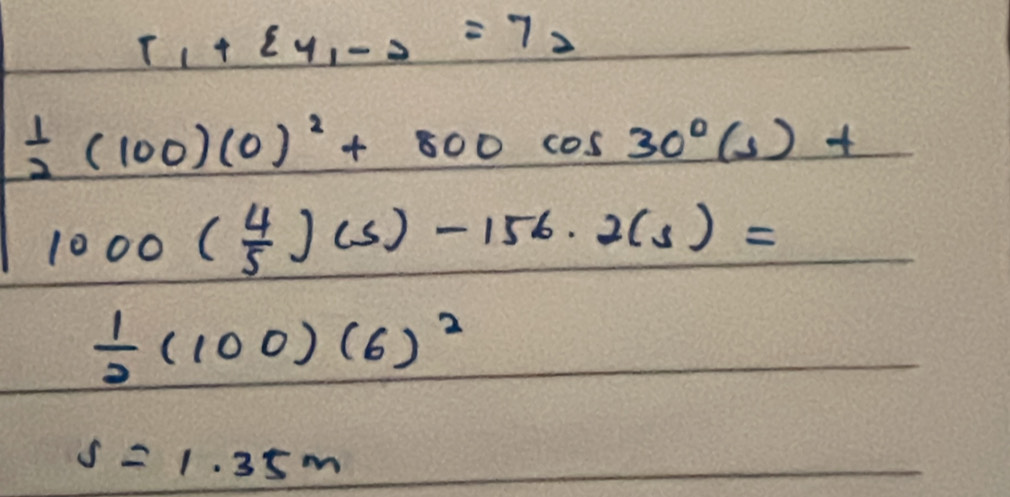 T₁ + ΣU₁₋₂ = T₂
1/2 (100)(0)² + 800 cos 30°(s) +
1000 (4/5)(s) - 156.2(s) =
1/2 (100)(6)²
s = 1.35m